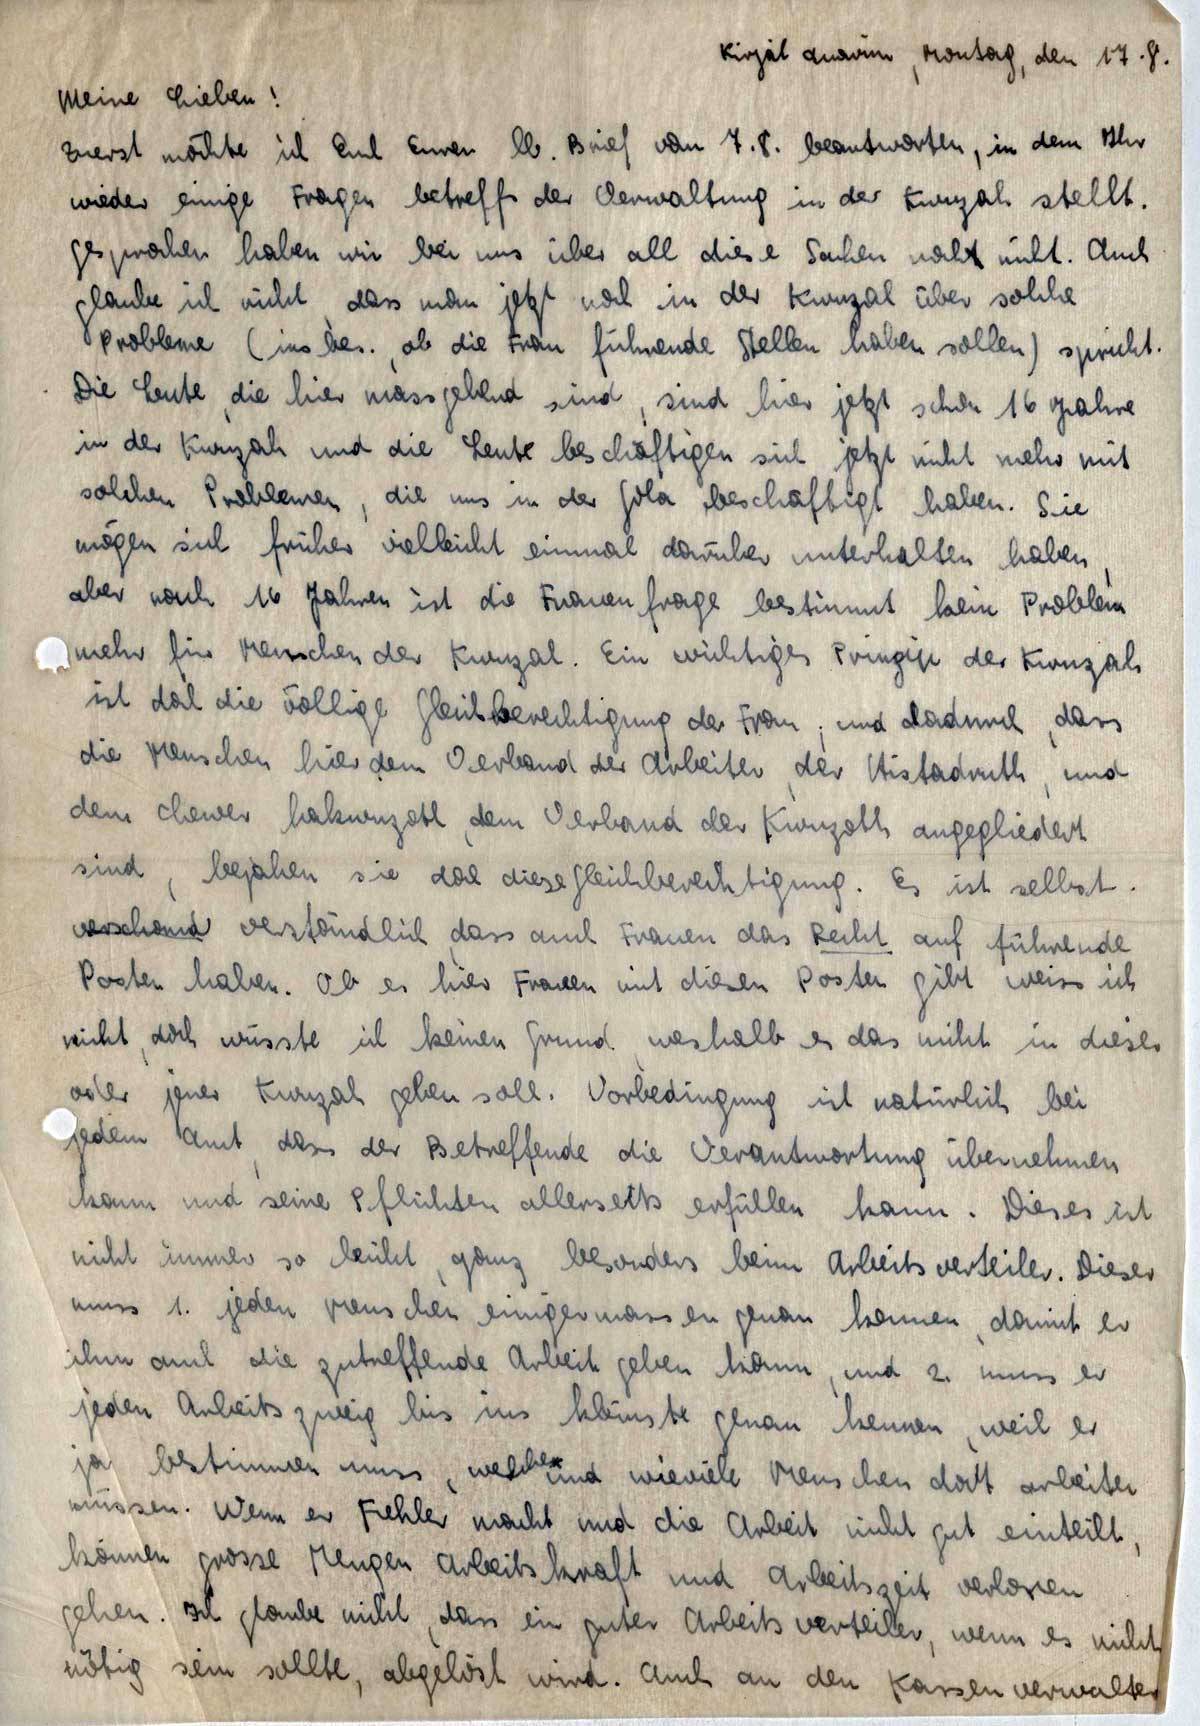 Kirjat Anavim, Montag, den 17.8.
Meine Lieben!
Zuerst möchte ich Euch Euren lb. Brief vom 7.8. beantworten, in dem Ihr
wieder einige Fragen betreffs der Verwaltung in der Kwuzah stellt.
Gesprochen haben wir bei uns über all diese Sachen noch nicht. Auch
glaube ich nicht, dass man jetzt noch in der Kwuzah über solche
Probleme (insbes. ob die Frau führende Stellen haben sollen) spricht.
Die Leute, die hier massgebend sind, sind hier jetzt schon 16 Jahre
in der Kwuzah und die Leute beschäftigen sich jetzt nicht mehr mit
solchen Problemen, die uns in der Gola beschäftigt haben. Sie
mögen sich früher vielleicht einmal darüber unterhalten haben,
aber nach 16 Jahren ist die Frauenfrage bestimmt kein Problem
mehr für Menschen der Kwuzah. Ein wichtiges Prinzip der Kwuzah
ist doch die völlige Gleichberechtigung der Frau, und dadurch, dass
die Menschen hier dem Verband der Arbeiter, der Histadruth, und
dem chewer hakwuzoth, dem Verband der Kwuzoth angegliedert
sind, bejahen sie doch diese Gleichberechtigung. Es ist selbst-
verständlich, dass auch Frauen das Recht auf führende
Posten haben. Ob es hier Frauen mit diesen Posten gibt weiss ich
nicht, doch wüsste ich keinen Grund, weshalb es das nicht in dieser
oder jener Kwuzah geben soll. Vorbedingung ist natürlich bei
jedem Amt, dass der Betreffende die Verantwortung übernehmen
kann und seine Pflichten allerseits erfüllen kann. Dieses ist
nicht immer so leicht, ganz besonders beim Arbeitsverteiler. Dieser
muss 1. jeden Menschen einigermassen genau kennen, damit er
ihm auch die zutreffende Arbeit geben kann, und 2. muss er
jeden Arbeitszweig bis ins kleinste genau kennen, weil er
ja bestimmen muss, welche und wieviele Menschen dort arbeiten
müssen. Wenn er Fehler macht und die Arbeit nicht gut einteilt,
können grosse Mengen Arbeitskraft und Arbeitszeit verloren
gehen. Ich glaube nicht, dass ein guter Arbeitsverteiler, wenn es nicht
nötig sein sollte, abgelöst wird. Auch an den Kassenverwalter